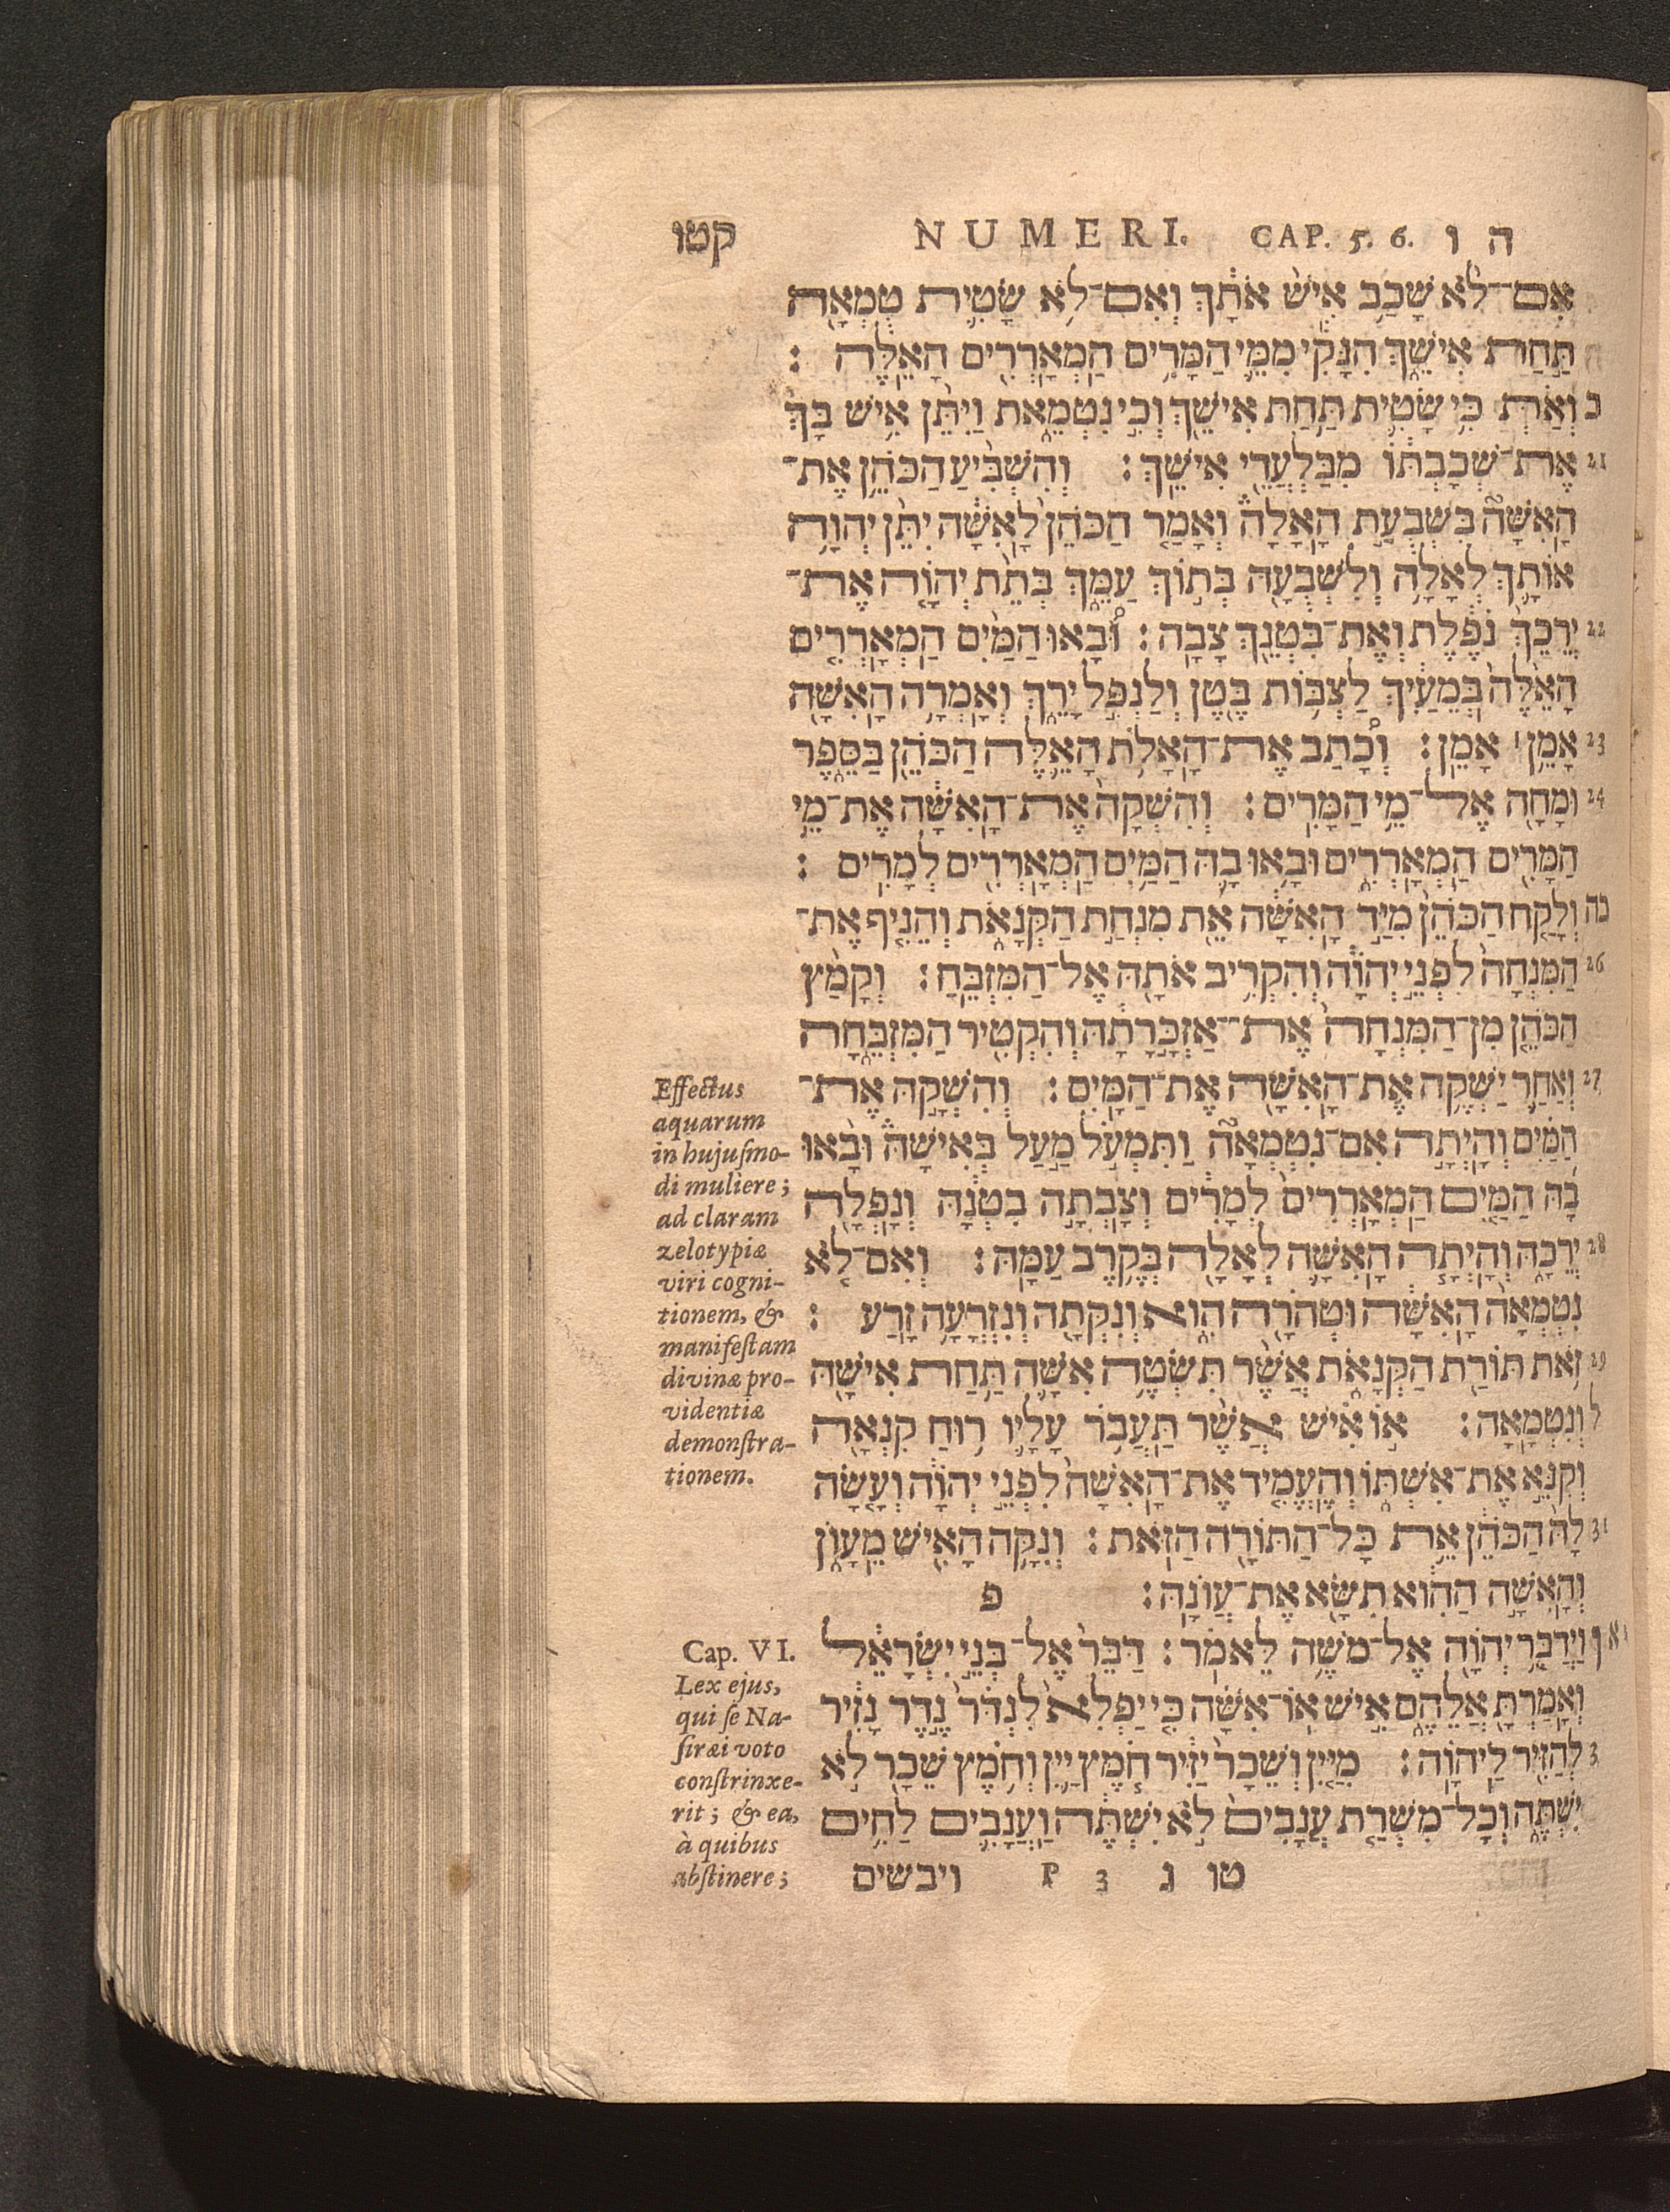 קטו NUMERI. CAP. 5. 6. ה ו
אִם־לֹא שָׁכַב אִישׁ אֹתָךְ וְאִם־לֹא שָׂטִית טֻמְאָה
תַּחַת אִישֵׁךְ הִנָּקִי מִמֵּי הַמָּרִים הַמְאָרְרִים הָאֵלֶּה :
כ וְאַתְּ כִּי שָׂטִית תַּחַת אִישֵׁךְ וְכִי נִטְמֵאת וַיִּתֵּן אִישׁ בָּךְ
21 אֶת־שְׁכָבְתּוֹ מִבַּלְעֲדֵי אִישֵׁךְ : וְהִשְׁבִּיעַ הַכֹּהֵן אֶת־
הָאִשָּׁה בִּשְׁבֻעַת הָאָלָה וְאָמַר הַכֹּהֵן לָאִשָּׁה יִתֵּן יְהוָה
אוֹתָךְ לְאָלָה וְלִשְׁבֻעָה בְּתוֹךְ עַמֵּךְ בְּתֵת יְהוָה אֶת־
22 יְרֵכֵךְ נֹפֶלֶת וְאֶת־בִּטְנֵךְ צָבָה : וּבָאוּ הַמַּיִם הַמְאָרְרִים
הָאֵלֶּה בְּמֵעַיִךְ לַצְבּוֹת בֶּטֶן וְלַנְפִּל יָרֵךְ וְאָמְרָה הָאִשָּׁה
23 אָמֵן ׀ אָמֵן : וְכָתַב אֶת־הָאָלֹת הָאֵלֶּה הַכֹּהֵן בַּסֵּפֶר
24 וּמָחָה אֶל־מֵי הַמָּרִים : וְהִשְׁקָה אֶת־הָאִשָּׁה אֶת־מֵי
הַמָּרִים הַמְאָרְרִים וּבָאוּ בָהּ הַמַּיִם הַמְאָרְרִים לְמָרִים :
כה וְלָקַח הַכֹּהֵן מִיַּד הָאִשָּׁה אֵת מִנְחַת הַקְּנָאֹת וְהֵנִיף אֶת־
26 הַמִּנְחָה לִפְנֵי יְהוָה וְהִקְרִיב אֹתָהּ אֶל־הַמִּזְבֵּחַ : וְקָמַץ
הַכֹּהֵן מִן־הַמִּנְחָה אֶת־אַזְכָּרָתָהּ וְהִקְטִיר הַמִּזְבֵּחָה
27 וְאַחַר יַשְׁקֶה אֶת־הָאִשָּׁה אֶת־הַמָּיִם : וְהִשְׁקָהּ אֶת־
הַמַּיִם וְהָיְתָה אִם־נִטְמְאָה וַתִּמְעֹל מַעַל בְּאִישָׁהּ וּבָאוּ
בָהּ הַמַּיִם הַמְאָרְרִים לְמָרִים וְצָבְתָה בִטְנָהּ וְנָפְלָה
28 יְרֵכָהּ וְהָיְתָה הָאִשָּׁה לְאָלָה בְּקֶרֶב עַמָּהּ : וְאִם־לֹא
נִטְמְאָה הָאִשָּׁה וּטְהֹרָה הִוא וְנִקְּתָה וְנִזְרְעָה זָרַע :
29 זֹאת תּוֹרַת הַקְּנָאֹת אֲשֶׁר תִּשְׂטֶה אִשָּׁה תַּחַת אִישָׁהּ
ל וְנִטְמָאָה : אוֹ אִישׁ אֲשֶׁר תַּעֲבֹר עָלָיו רוּחַ קִנְאָה
וְקִנֵּא אֶת־אִשְׁתּוֹ וְהֶעֱמִיד אֶת־הָאִשָּׁה לִפְנֵי יְהוָה וְעָשָׂה
31 לָהּ הַכֹּהֵן אֵת כָּל־הַתּוֹרָה הַזֹּאת : וְנִקָּה הָאִישׁ מֵעָוֹן
וְהָאִשָּׁה הַהִוא תִּשָּׂא אֶת־עֲוֹנָהּ : פ
וַיְדַבֵּר יְהוָה אֶל־מֹשֶׁה לֵּאמֹר : דַּבֵּר אֶל־בְּנֵי יִשְׂרָאֵל
וְאָמַרְתָּ אֲלֵהֶם אִישׁ אוֹ־אִשָּׁה כִּי יַפְלִא לִנְדֹּר נֶדֶר נָזִיר
3 לְהַזִּיר לַיהוָה : מִיַּיִן וְשֵׁכָר יַזִּיר חֹמֶץ יַיִן וְחֹמֶץ שֵׁכָר לֹא
יִשְׁתֶּה וְכָל־מִשְׁרַת עֲנָבִים לֹא יִשְׁתֶּה וַעֲנָבִים לַחִים
טו ג P 3 ויבשים
Effectus
aquarum
in hujusmo-
di muliere;
ad claram
zelotypiæ
viri cogni-
tionem, &
manifestam
divinæ pro-
videntiæ
demonstra-
tionem.
Cap. VI.
Lex ejus,
qui se Na-
siræi voto
constrinxe-
rit; & ea,
à quibus
abstinere;